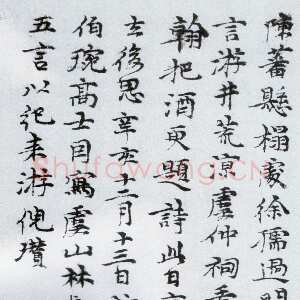 陳蕃懸榻處徐孺過
言游井荒涼虞仲祠看
翰把酒更題詩此日
去後思辛亥十二月十三日
伯琬高士因寫虞山林
五言以紀来游倪瓚
Shufawang.CN